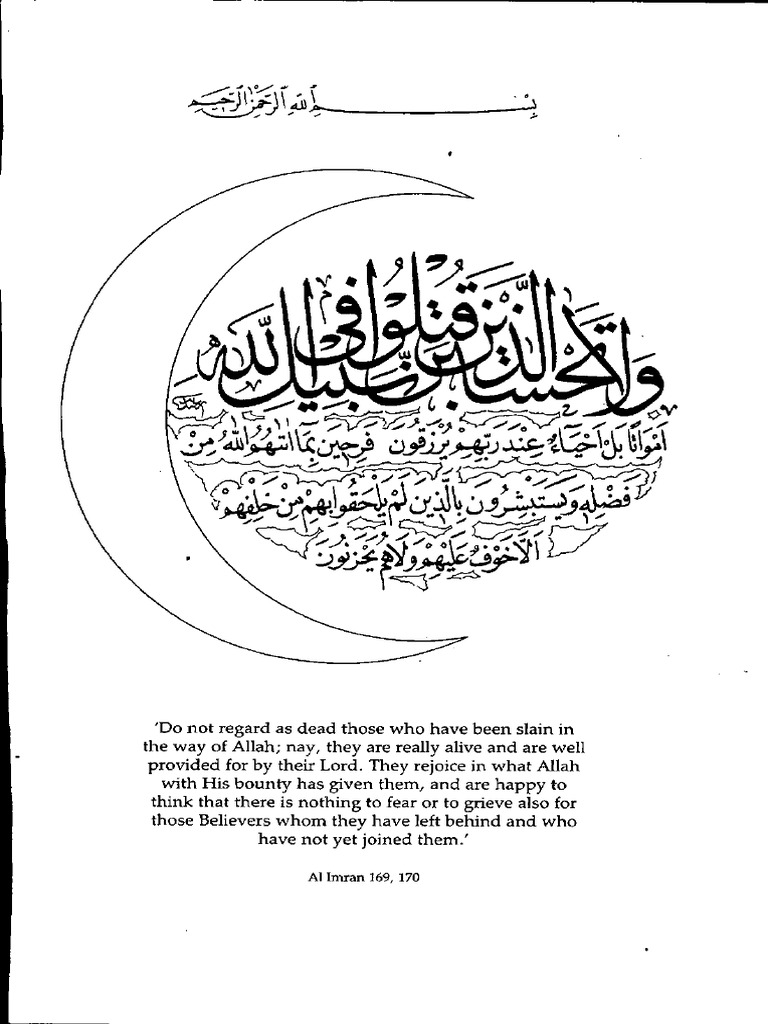 بِسْمِ اللهِ الرَّحْمٰنِ الرَّحِيمِ
وَلَا تَحْسَبَنَّ الَّذِينَ قُتِلُوا فِي سَبِيلِ اللهِ
اَمْوَاتًا بَلْ اَحْيَاءٌ عِنْدَ رَبِّهِمْ يُرْزَقُونَ فَرِحِينَ بِمَا اٰتٰهُمُ اللهُ مِنْ
فَضْلِهِ وَيَسْتَبْشِرُونَ بِالَّذِينَ لَمْ يَلْحَقُوا بِهِمْ مِنْ خَلْفِهِمْ
اَلَّا خَوْفٌ عَلَيْهِمْ وَلَا هُمْ يَحْزَنُونَ
'Do not regard as dead those who have been slain in
the way of Allah; nay, they are really alive and are well
provided for by their Lord. They rejoice in what Allah
with His bounty has given them, and are happy to
think that there is nothing to fear or to grieve also for
those Believers whom they have left behind and who
have not yet joined them.'
Al Imran 169, 170